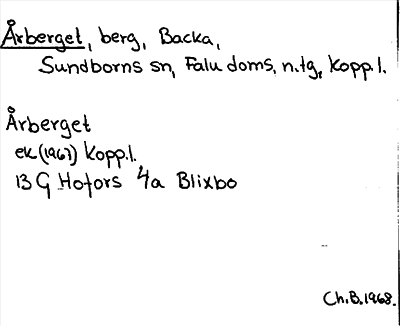 Årberget, berg, Backa,
Sundborns sn, Falu doms. n.tg, Kopp. l.
Årberget
ek (1967) Kopp.l.
13 G Hofors 4a Blixbo
Ch.B.1968.